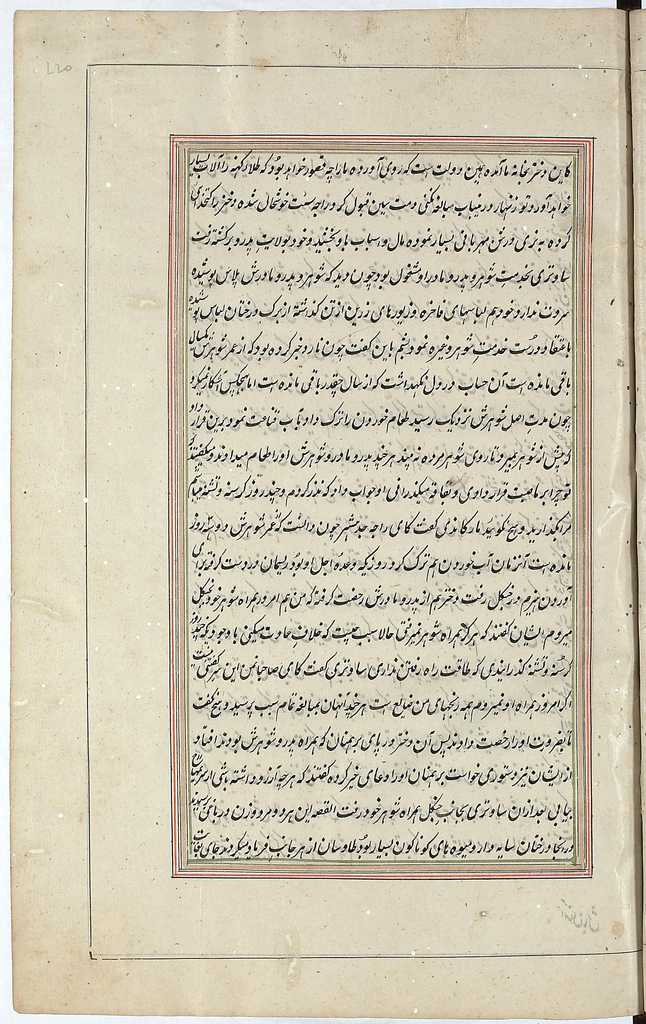 کاین دختر بخانه ما آمده همین دولت است که روی آورده ما را چه قصور خواهد بود که طلا و کهنه و آلات بسیار
خواهد آورد تو زنهار درینباب مبالغه نکنی و مت سین قبول کرد و راجه سنت خوشحال شده دختر را کتخدای
کرده به نری ورتن مهربانی بسیار نموده مال و اسباب با و بخشید و خود بولایت بدر و برگشته رفت
ساوتری بخدمت شوهر و پدر و مادر او مشغول بود چون دید که شوهر و پدر و مادرش پلاس پوشیده
سر و ن ندارد خود هم لباسهای فاخره و زیورهای زرین از تن گذاشته از برک درختان لباس پوشیده
با عتقاد درست خدمت شوهر و غیره نمودیشم باین گفت چون نارد خبر کرده بود که از عمر شوهرش یکسال
باقی مانده است آن حساب در دل نگهداشت که از سال چقدر باقی مانده است اما بهیچکس آشکار نمیکرد
چون مدت اصل شوهرش نزدیک رسید طعام خوردن را ترک داد و بآب قناعت نمود برین قرار داد
که پیش از شوهر بمیرد تا روی شوهر مرده نه بیند هر چند پدر و مادر و شوهرش او را طعام میدادند و میگفتند
تو چرا بر ما عیب قرار دادی و بفاقه میگذرانی او جواب داد که نذر کردم و چند روز گرسنه و تشنه میباشم
مرا بگذارید و هیچ نگوئید مارکاندی گفت کای راجه جدشتر چون دانست که عمر شوهرش دو سه روز
مانده است آنزمان آب خوردن هم ترک کرد روزیکه وعده اجل او بود ریسمان در دست گرفته برای
آوردن هیزم در جنگل رفت دختر هم از پدر و مادرش رخصت گرفته که من هم امروز همراه شوهر خود بجنگل
میروم ایشان گفتند که هرگز همراه شوهر نمیرفتی حالا سبب چیست که خلاف عادت میکنی با وجودیکه چند روز
گرسنه و تشنه گذرانیدی که طاقت راه رفتن نداری ساوتری گفت کای صاحبان من این سر گفتنی نیست
اگر امروز همراه او نمیروم همه رنجهای من ضایع است هر چند آنهان بمبالغه تمام سبب پرسید و هیچ نگفت
تا بضرورت او را رخصت دادند پس آن دختر در پای برهمنان که همراه پدر و شوهرش بودند افتاد و
از ایشان نیز دستوری خواست برهمنان او را دعای خیر کرده گفتند که هر چه آرزو داشته باشی از
بیابی بعد ازان ساوتری بجانب جنگل همراه شوهر خود رفت القصه این هر دو مرد و زن در باغی رسیدند
در آنجا درختان سایه دار و میوه های گوناگون بسیار بود طاوسان از هر جانب فریاد میکردند جای بغایت